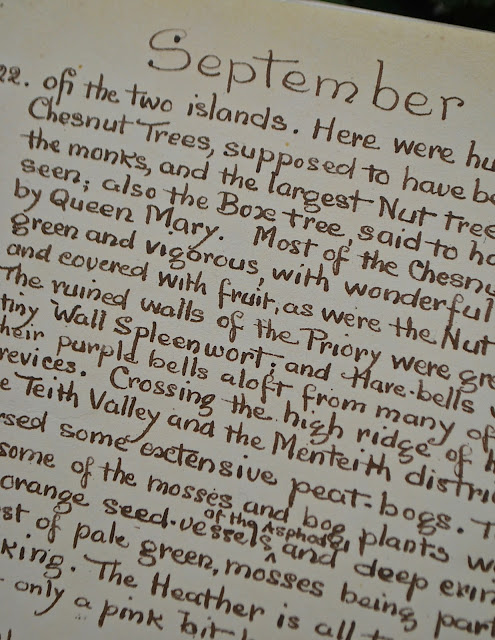 September
22. on the two islands. Here were hu
Chesnut Trees, supposed to have be
the monks, and the largest Nut tree
seen; also the Box tree, said to ha
by Queen Mary. Most of the Chesnu
green and vigorous, with wonderful
and covered with fruit, as were the Nut
The ruined walls of the Priory were gre
tiny Wall Spleenwort; and Hare-bells
their purple bells aloft from many of
revices. Crossing the high ridge of h
e Teith Valley and the Menteith distri
rsed some extensive peat-bogs. T
some of the mosses and bog plants w
of the Asphodel
orange seed-vessels ^ and deep crim
st of pale green, mosses being par
king. The Heather is all
only a pink bit